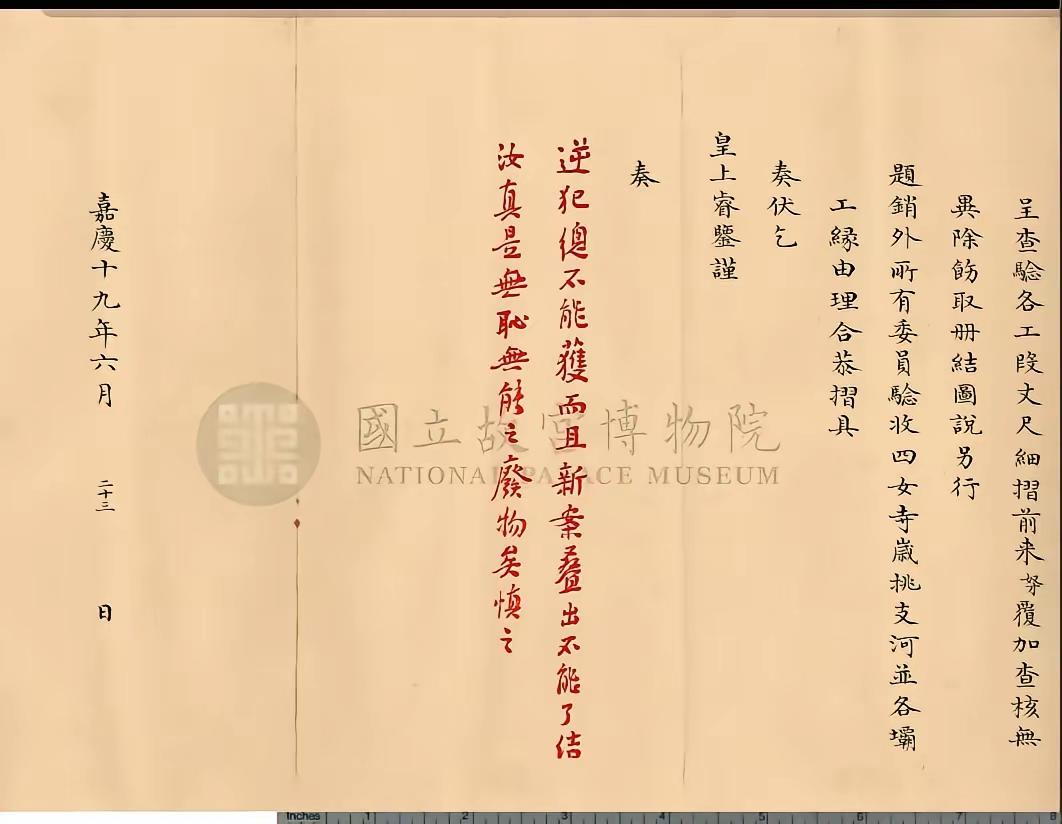 呈查驗各工段丈尺細摺前來奴覆加查核無
異除飭取册結圖說另行
題銷外所有委員驗收四女寺嵗挑支河並各壩
工縁由理合恭摺具
奏伏乞
皇上睿鑒謹
奏
逆犯總不能獲而且新案疊出不能了结
汝真是無恥無能之廢物矣慎之
嘉慶十九年六月 二十三 日
國立故宮博物院
NATIONAL PALACE MUSEUM
Inches 1 2 3 4 5 6 7 8